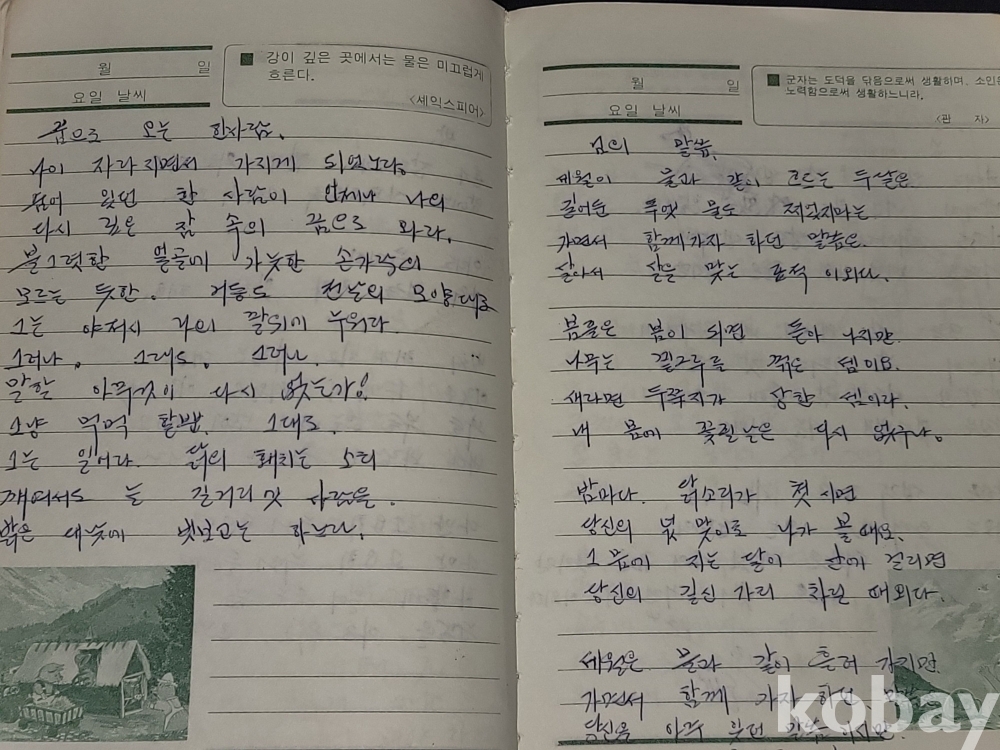 월 일
요일 날씨
■ 강이 깊은 곳에서는 물은 미끄럽게
흐른다.
〈세익스피어〉
꿈으로 오는 한사람.
나이 자라지면서 가지게 되었노라.
숨어 있던 한 사람이 언제나 나의
다시 깊은 잠 속의 꿈으로 와라.
불그렷한 얼골에 가늣한 손가락의
모르는 듯한. 거동도 전날의 모양대로
그는 야저시 나의 팔위에 누워라
그러나. 그래도. 그러나.
말할 아무것이 다시 없는가!
그냥 먹먹 할뿐. 그대로.
그는 일어라. 닭의 홰치는 소리
깨여서도 늘 길거리엣 사람을.
밝은 대낮에 빗보고는 하노라.
월 일
요일 날씨
■ 군자는 도덕을 닦음으로써 생활하며, 소인은
노력함으로써 생활하느니라.
〈편 자〉
님의 말씀.
세월이 물과 같이 흐르는 두달은
길어둔 독엣 물도 찌었지마는
가면서 함께가자 하던 말씀은
살아서 살을 맞는 표적 이외다.
봄풀은 봄이 되면 돋아 나지만
나무는 밑그루를 꺾은 셈이요.
새라면 두쭉지가 상한 셈이라.
내 몸에 꽃필날은 다시 없구나.
밤마다. 닭소리가 첫 시면
당신의 넋 맞이로 나가 볼때요.
그믐에 지는 달이 산에 걸리면
당신의 길신 가리 차릴 때외다.
세월은 물과 같이 흘러 가지만
가면서 함께 가자 하던
당신을 아주
kobay